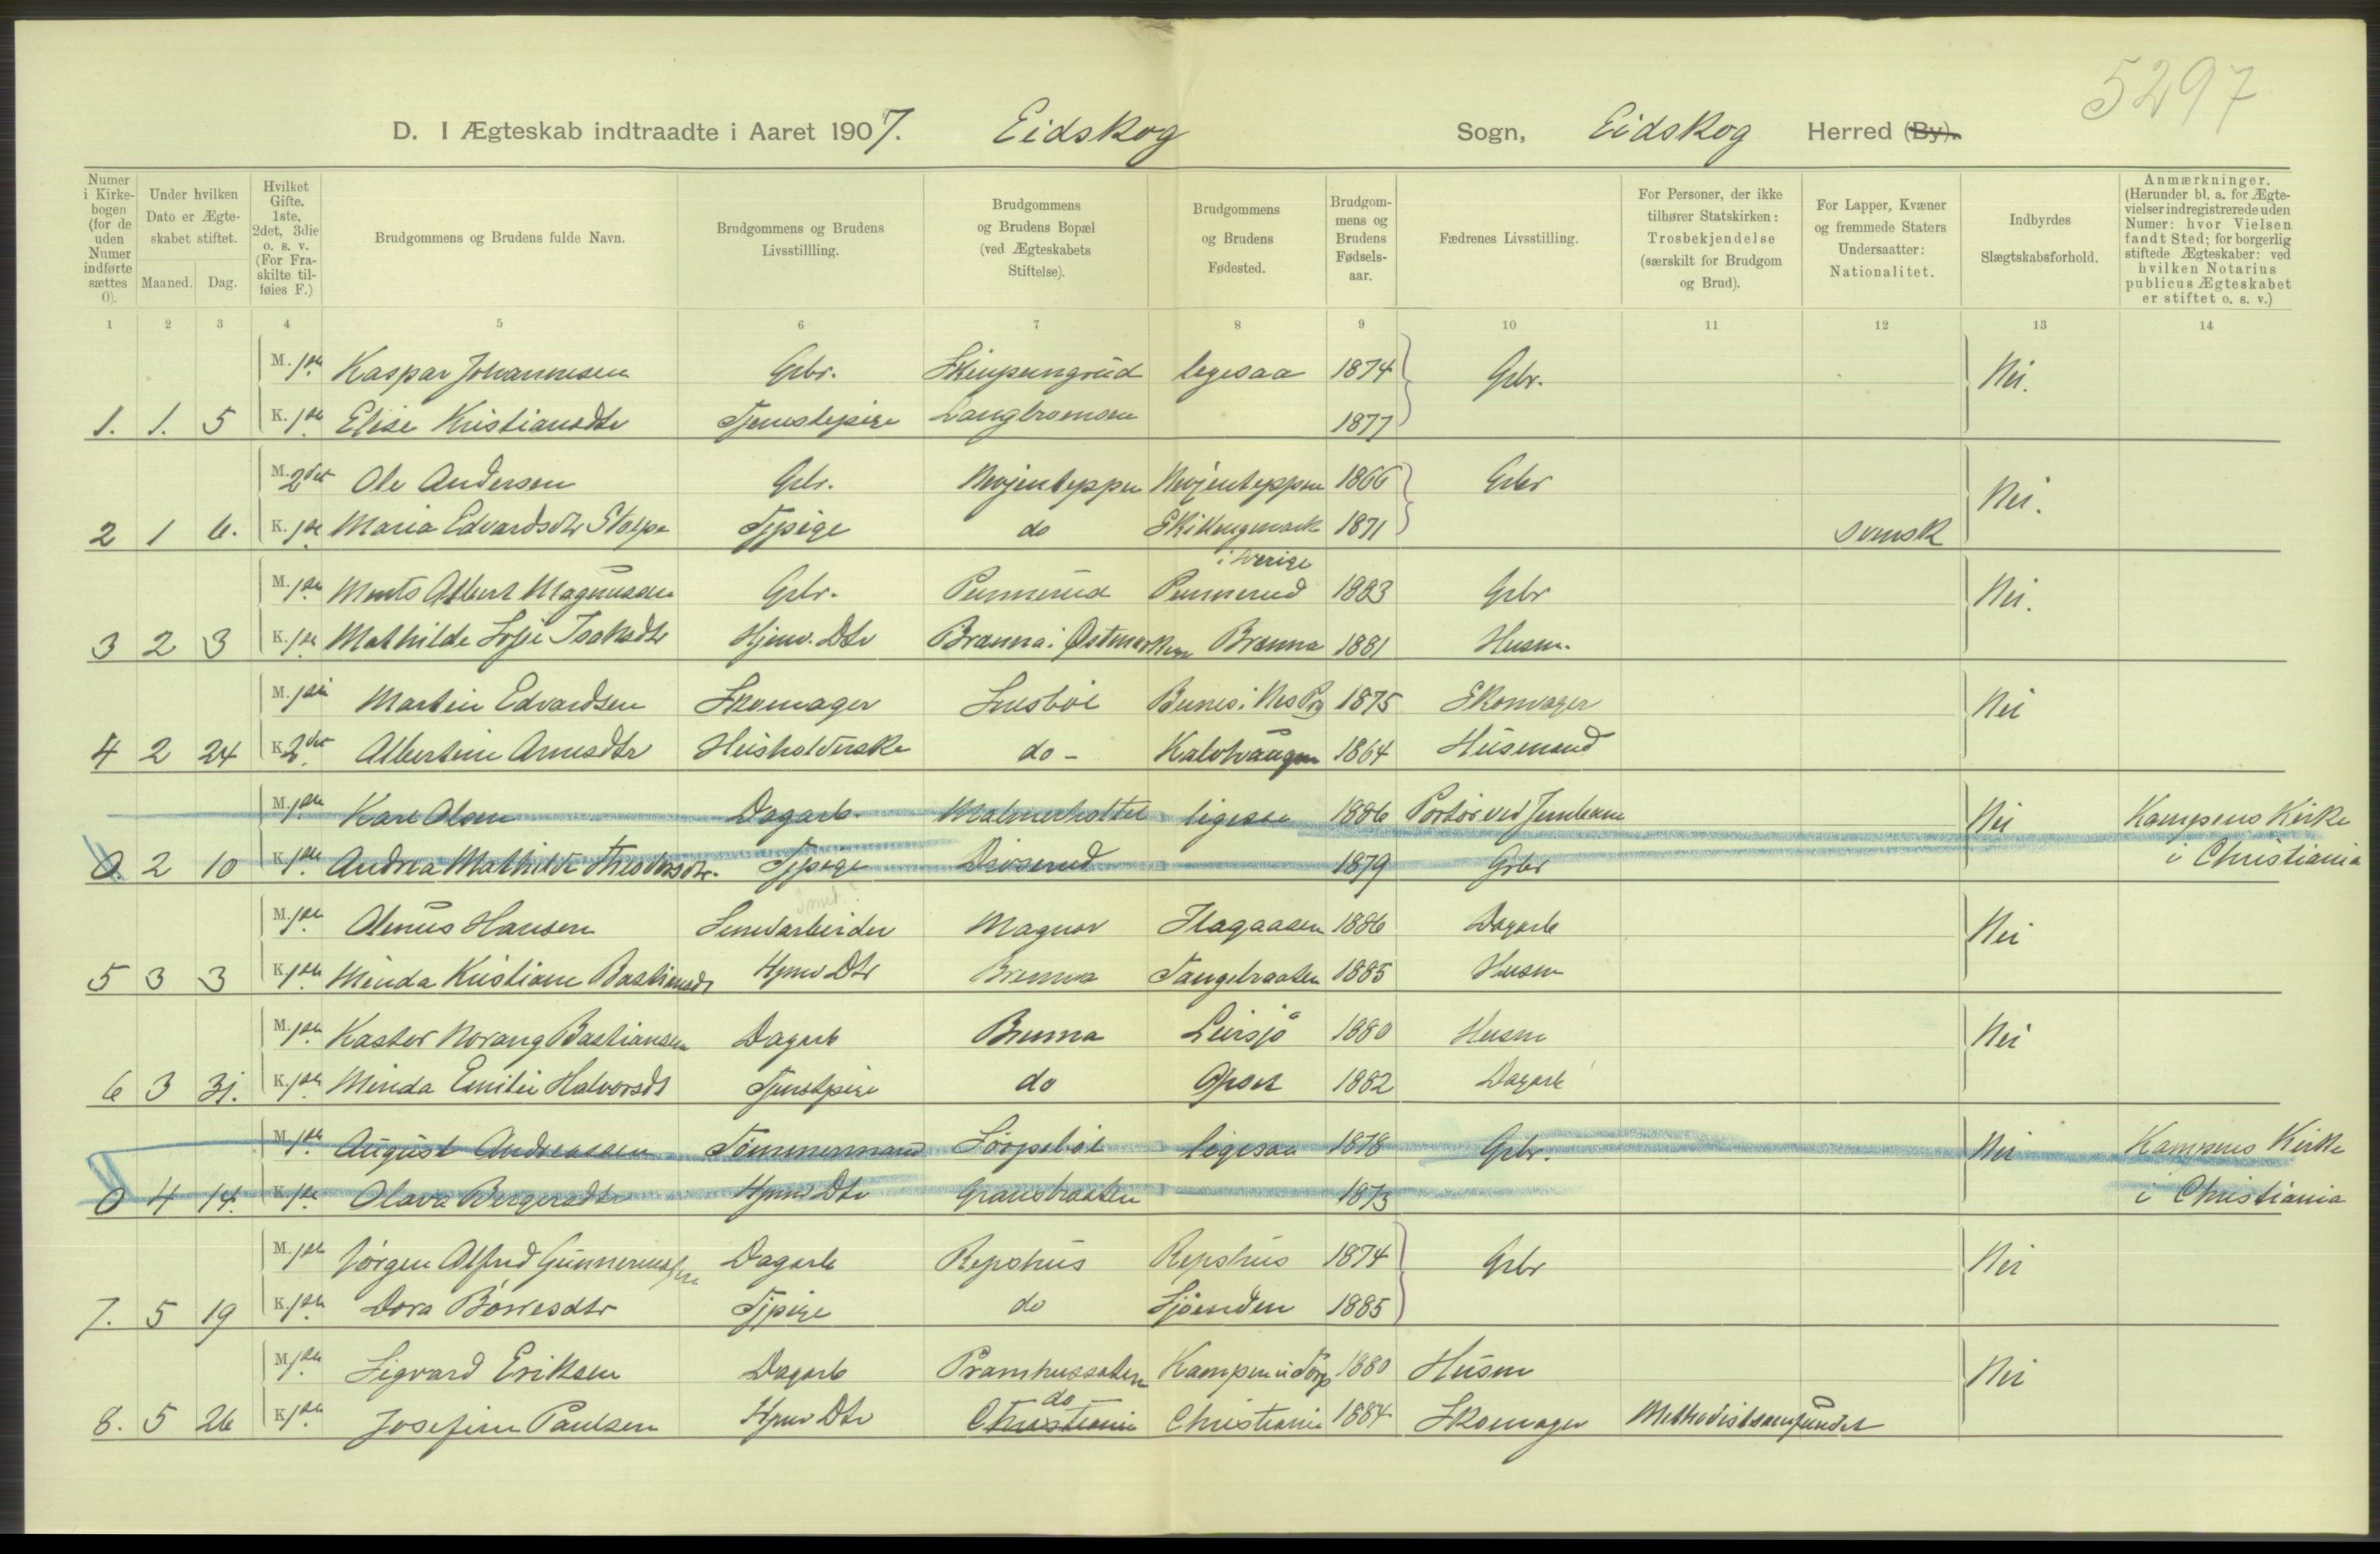 5297
D. I Ægteskab indtraadte i Aaret 1907. Eidskog Sogn, Eidskog Herred (By).
Numer i Kirkebogen (for de uden Numer indførte sættes 0).
Under hvilken Dato er Ægteskabet stiftet.
Maaned. Dag.
Hvilket Gifte. 1ste, 2det, 3die o. s. v. (For Fraskilte tilføies F.)
Brudgommens og Brudens fulde Navn.
Brudgommens og Brudens Livsstillling.
Brudgommens og Brudens Bopæl (ved Ægteskabets Stiftelse).
Brudgommens og Brudens Fødested.
Brudgommens og Brudens Fødselsaar.
Fædrenes Livsstilling.
For Personer, der ikke tilhører Statskirken: Trosbekjendelse (særskilt for Brudgom og Brud).
For Lapper, Kvæner og fremmede Staters Undersaatter: Nationalitet.
Indbyrdes Slægtskabsforhold.
Anmærkninger. (Herunder bl. a. for Ægtevielser indregistrerede uden Numer: hvor Vielsen fandt Sted; for borgerlig stiftede Ægteskaber: ved hvilken Notarius publicus Ægteskabet er stiftet o. s. v.)
1 2 3 4 5 6 7 8 9 10 11 12 13 14
M. 1ste Kaspar Johannesen Gbr. Skinpungrud ligesaa 1874 Gbr. Nei.
1. 1. 5 K. 1ste Elise Kristiansdtr Tjenestepige Langbromoen 1877
M. 2det Ole Andersen Gbr. 1866 Gbr Nei.
2 1 6. K. 1ste Maria Edvardsdtr Tjpige do 1871 svensk
i Sverige
M. 1ste Albert Magnusen Gbr. Pennerud Pennerud 1883 Gbr Nei.
3 2 3 K. 1ste Mathilde Sofie Isaksdtr Hjemv. Dtr Branna i Østmarken Branna 1881 Husm.
M. 1ste Martin Edvardsen Skomager 1875 Skomager Nei
4 2 24 K. 2det Albertine Arnesdtr Husholderske do - 1864 Husmand
M. 1ste Karl Olsen Dagarb. Malmerholtet ligesaa 1886 Portør ved Jernbane Nei Kampens Kirke
0 2 10 K. 1ste Andrea Mathilde Theodorsdtr. Tjpige 1879 Gbr i Christiania
M. 1ste Olenus Hansen Magnor Hagaasen 1886 Dagarb Nei
5 3 3 K. 1ste Minda Kristiane Bastiansdt Hjemv Dtr Brenna Tangebraaten 1885 Husm
M. 1ste Kastor Norang Bastiansen Dagarb Brenna Leirsjø 1880 Husm Nei
6 3 31. K. 1ste Minda Emilie Halvorsdt Tjenstpige do 1882 Dagarb
M. 1ste August Andreassen Tømmermand ligesaa 1878 Gbr. Nei Kampens Kirke
0 4 14. K. 1ste Olava Bergersdtr Hjemv Dtr Granebraaten 1873 i Christiania
M. 1ste Jørgen Alfred Gunnerussen Dagarb Repshus Repshus 1874 Gbr Nei
7. 5 19 K. 1ste Dora Børresdtr Tjpige do Sjøenden 1885
M. 1ste Sigvard Eriksen Dagarb Pramhussæteren 1880 Husm Nei
do
8. 5 26 K. 1ste Josefine Paulsen Hjemv Dtr Christiania Christiania 1884 Skomager Methodistsamfundet